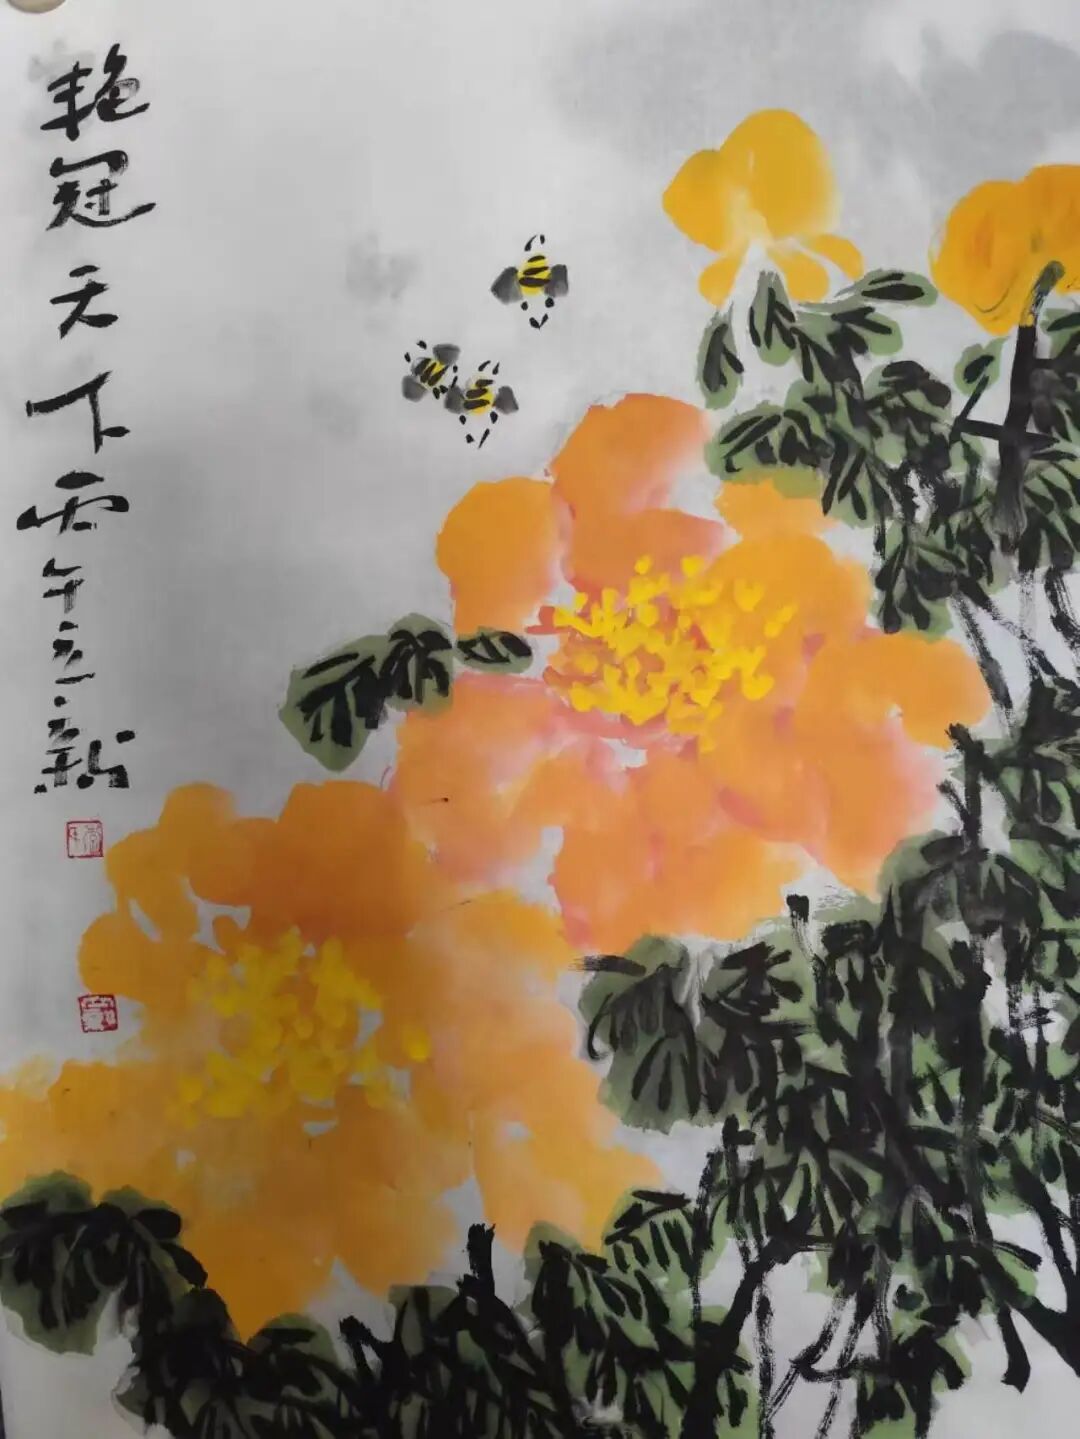 艳冠天下丙午立新